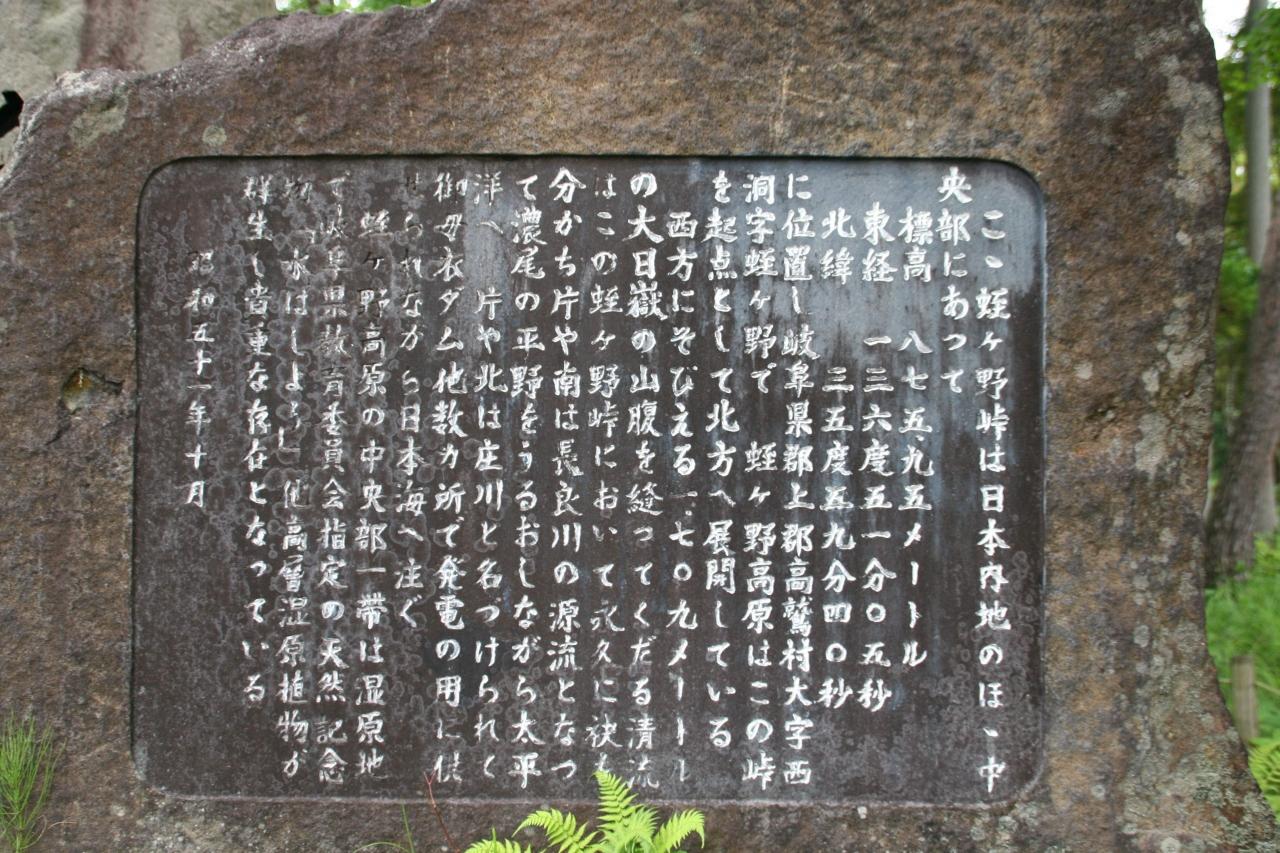 こゝ蛭ヶ野峠は日本内地のほゞ中
央部にあって
標高　八七五、九五メートル
東経　一三六度五一分〇五秒
北緯　三五度五九分四〇秒
に位置し岐阜県郡上郡高鷲村大字西
洞字蛭ヶ野で　蛭ヶ野高原はこの峠
を起点として北方へ展開している
西方にそびえる一、七〇九メートル
の大日嶽の山腹を縫ってくだる清流
はこの蛭ヶ野峠において永久に袂を
分かち片や南は長良川の源流となっ
て濃尾の平野をうるおしながら太平
洋へ　片や北は庄川と名づけられて
御母衣ダム他数カ所で発電の用に供
せられながら日本海へ注ぐ
蛭ヶ野高原の中央部一帯は湿原地
で岐阜県教育委員会指定の天然記念
物「水ばしょう」他高層湿原植物が
群生し貴重な存在となっている
昭和五十一年十月